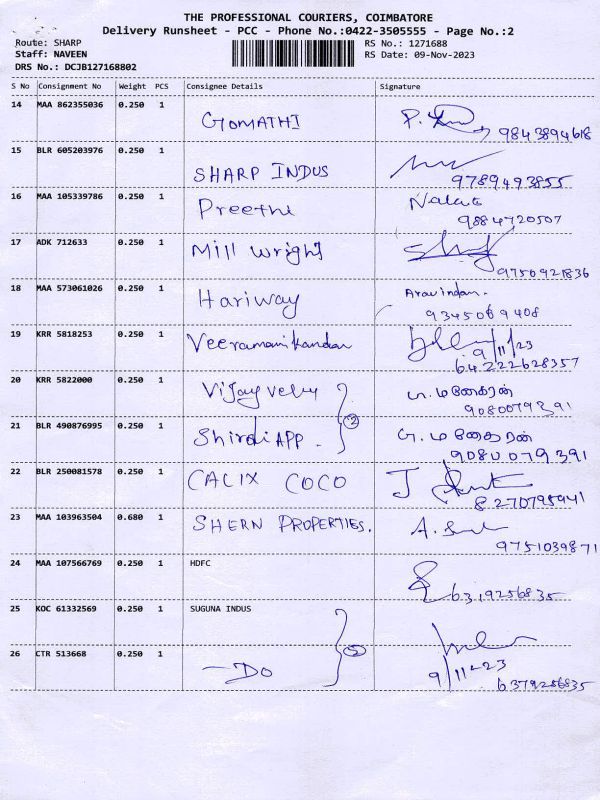 THE PROFESSIONAL COURIERS, COIMBATORE
Delivery Runsheet - PCC - Phone No.:0422-3505555 - Page No.:2
Route: SHARP RS No.: 1271688
Staff: NAVEEN RS Date: 09-Nov-2023
DRS No.: DCJB127168802
S No Consignment No Weight PCS Consignee Details Signature
14 MAA 862355036 0.250 1 GOMATHI 9843894618
15 BLR 605203976 0.250 1 SHARP INDUS
9789493855
16 MAA 105339786 0.250 1 Preethi
9884720507
17 ADK 712633 0.250 1 Mill Wright
9750921836
18 MAA 573061026 0.250 1 Hariway Aravindan.
9345069408
19 KRR 5818253 0.250 1 Veeramanikandan
9/11/23
64222628357
20 KRR 5822000 0.250 1 Vijay Velu
9080079391
21 BLR 490876995 0.250 1 Shirdi APP. 2
9080079391
22 BLR 250081578 0.250 1 CALIX COCO
8270795941
23 MAA 103963504 0.680 1 SHERN PROPERTIES.
9751039871
24 MAA 107566769 0.250 1 HDFC
6319256835
25 KOC 61332569 0.250 1 SUGUNA INDUS
26 CTR 513668 0.250 1 —DO 9/11-23
6379286835